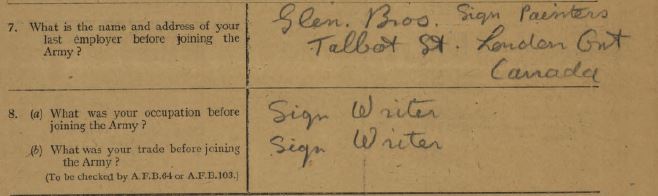 7. What is the name and address of your
last employer before joining the
Army ?
Glen. Bros. Sign Painters
Talbot St. London Ont
Canada
8. (a) What was your occupation before
joining the Army ?
Sign Writer
(b) What was your trade before joining
the Army ?
(To be checked by A.F.B.64 or A.F.B.103.)
Sign Writer